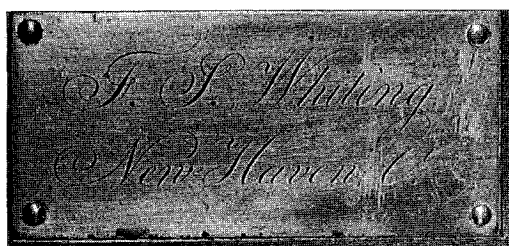 F. S. Whiting
New Haven C